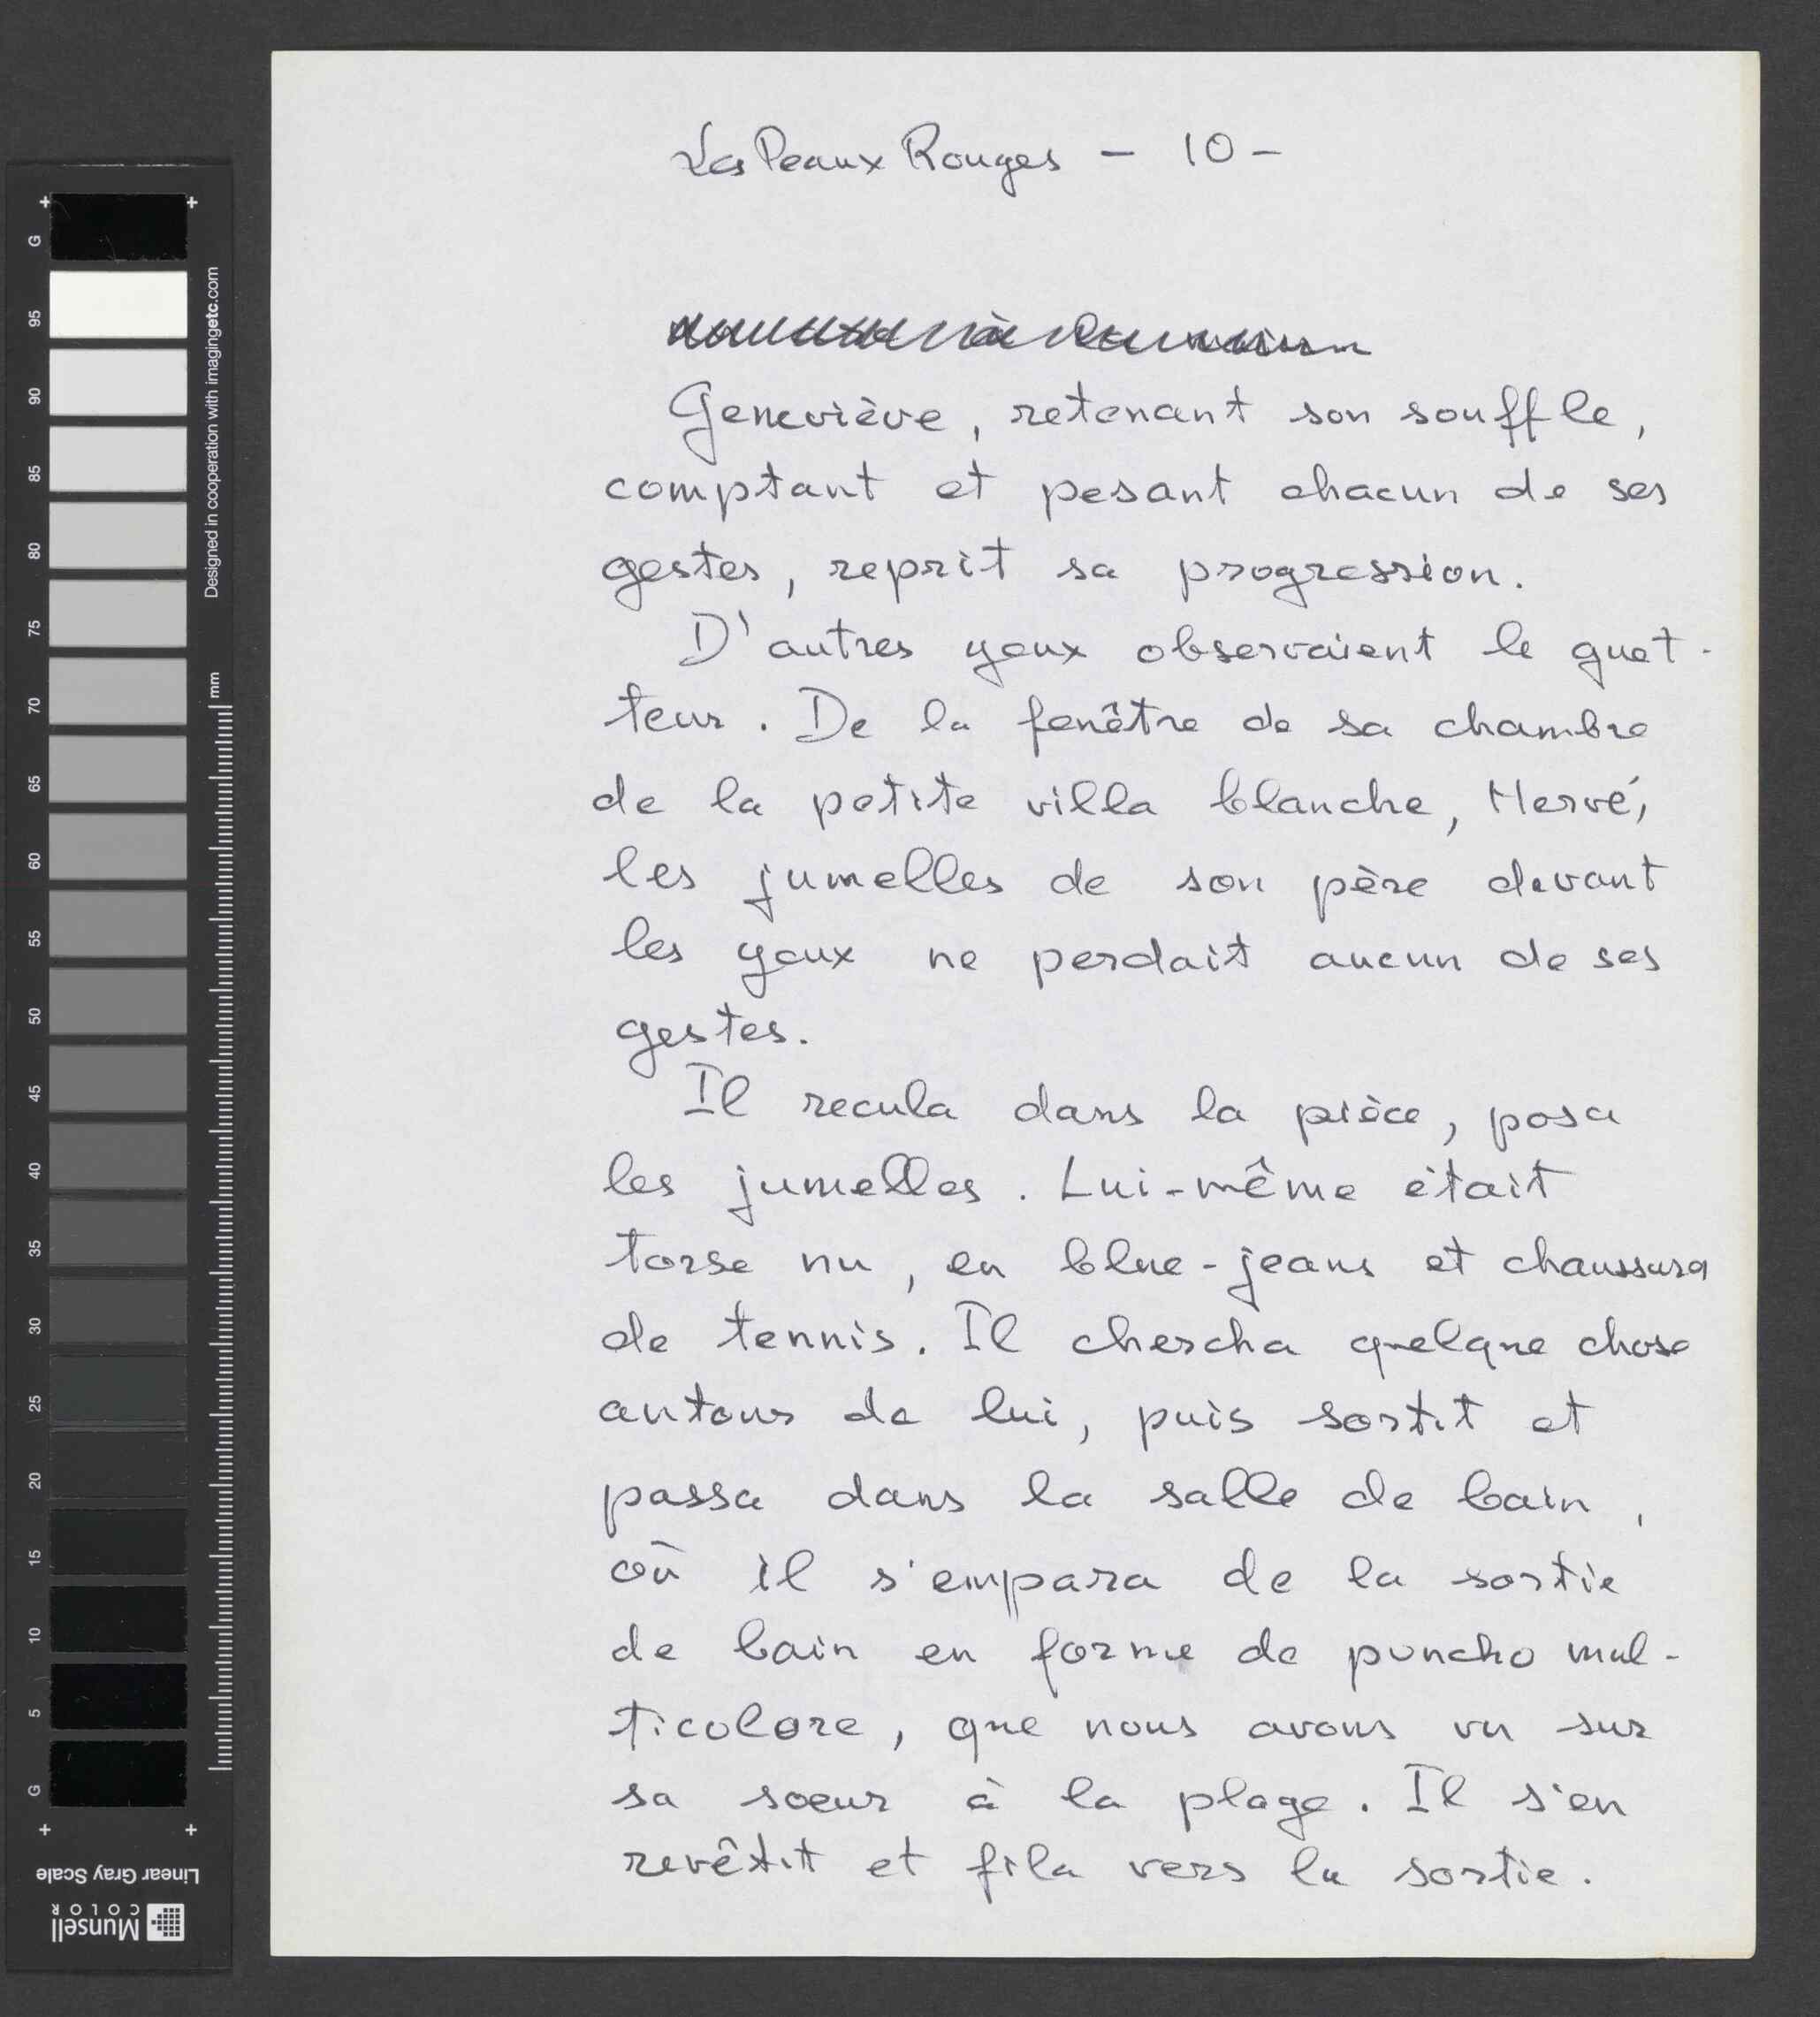 Les Peaux Rouges - 10 -
Geneviève, retenant son souffle,
comptant et pesant chacun de ses
gestes, reprit sa progression.
D'autres yeux observaient le guet-
teur. De la fenêtre de sa chambre
de la petite villa blanche, Hervé,
les jumelles de son père devant
les yeux ne perdait aucun de ses
gestes.
Il recula dans la pièce, posa
les jumelles. Lui-même était
torse nu, en blue-jeans et chaussures
de tennis. Il chercha quelque chose
autour de lui, puis sortit et
passa dans la salle de bain,
où il s'empara de la sortie
de bain en forme de puncho mul-
ticolore, que nous avons vu sur
sa soeur à la plage. Il s'en
revêtit et fila vers la sortie.
G
95
90
85
80
75
70
65
60
55
50
45
40
35
30
25
20
15
10
5
G
Designed in cooperation with imagingetc.com
mm
Linear Gray Scale
Munsell
COLOR